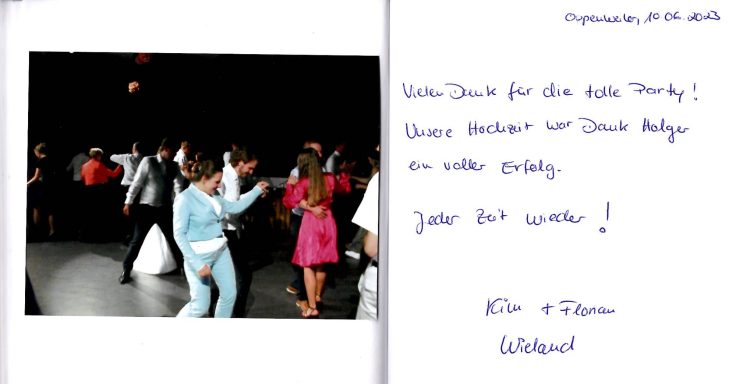 Oppenweiler, 10.06.2023
Vielen Dank für die tolle Party!
Unsere Hochzeit war Dank Holger
ein voller Erfolg.
Jeder Zeit wieder!
Kim + Florian
Wieland